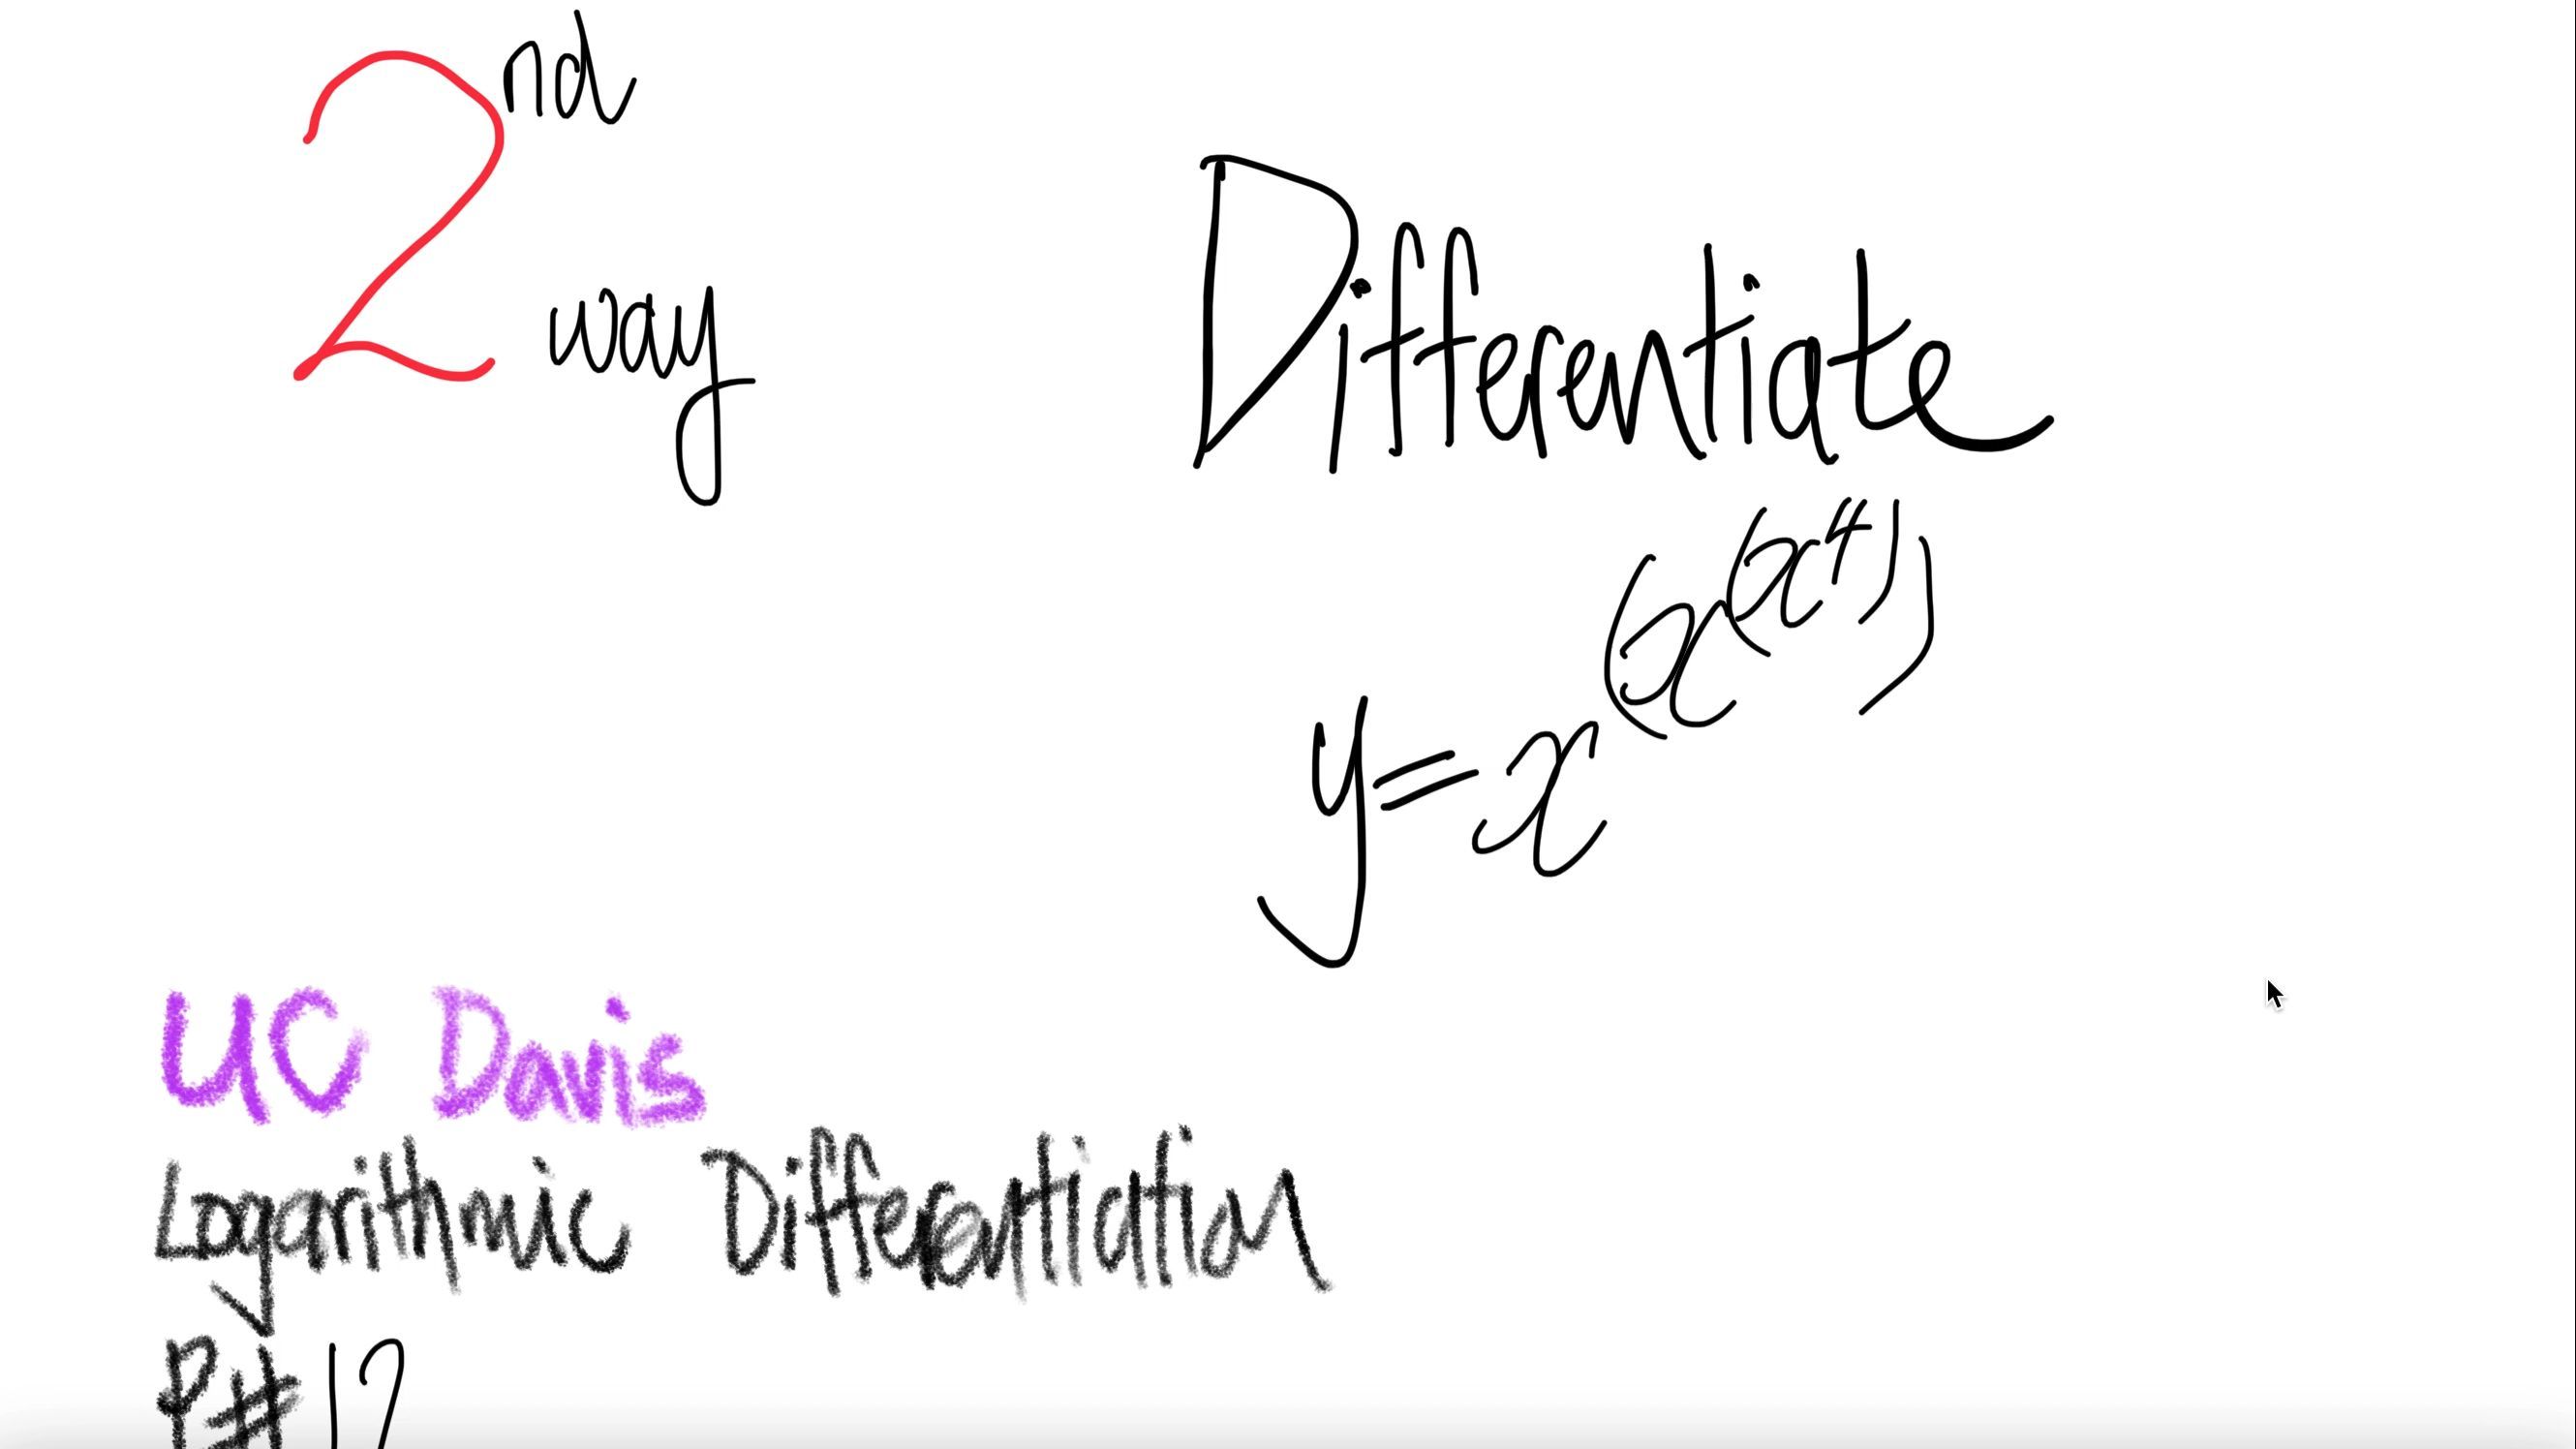 2nd way
Differentiate
y=x^(x^(x^4))
UC Davis
Logarithmic Differentiation
P#12